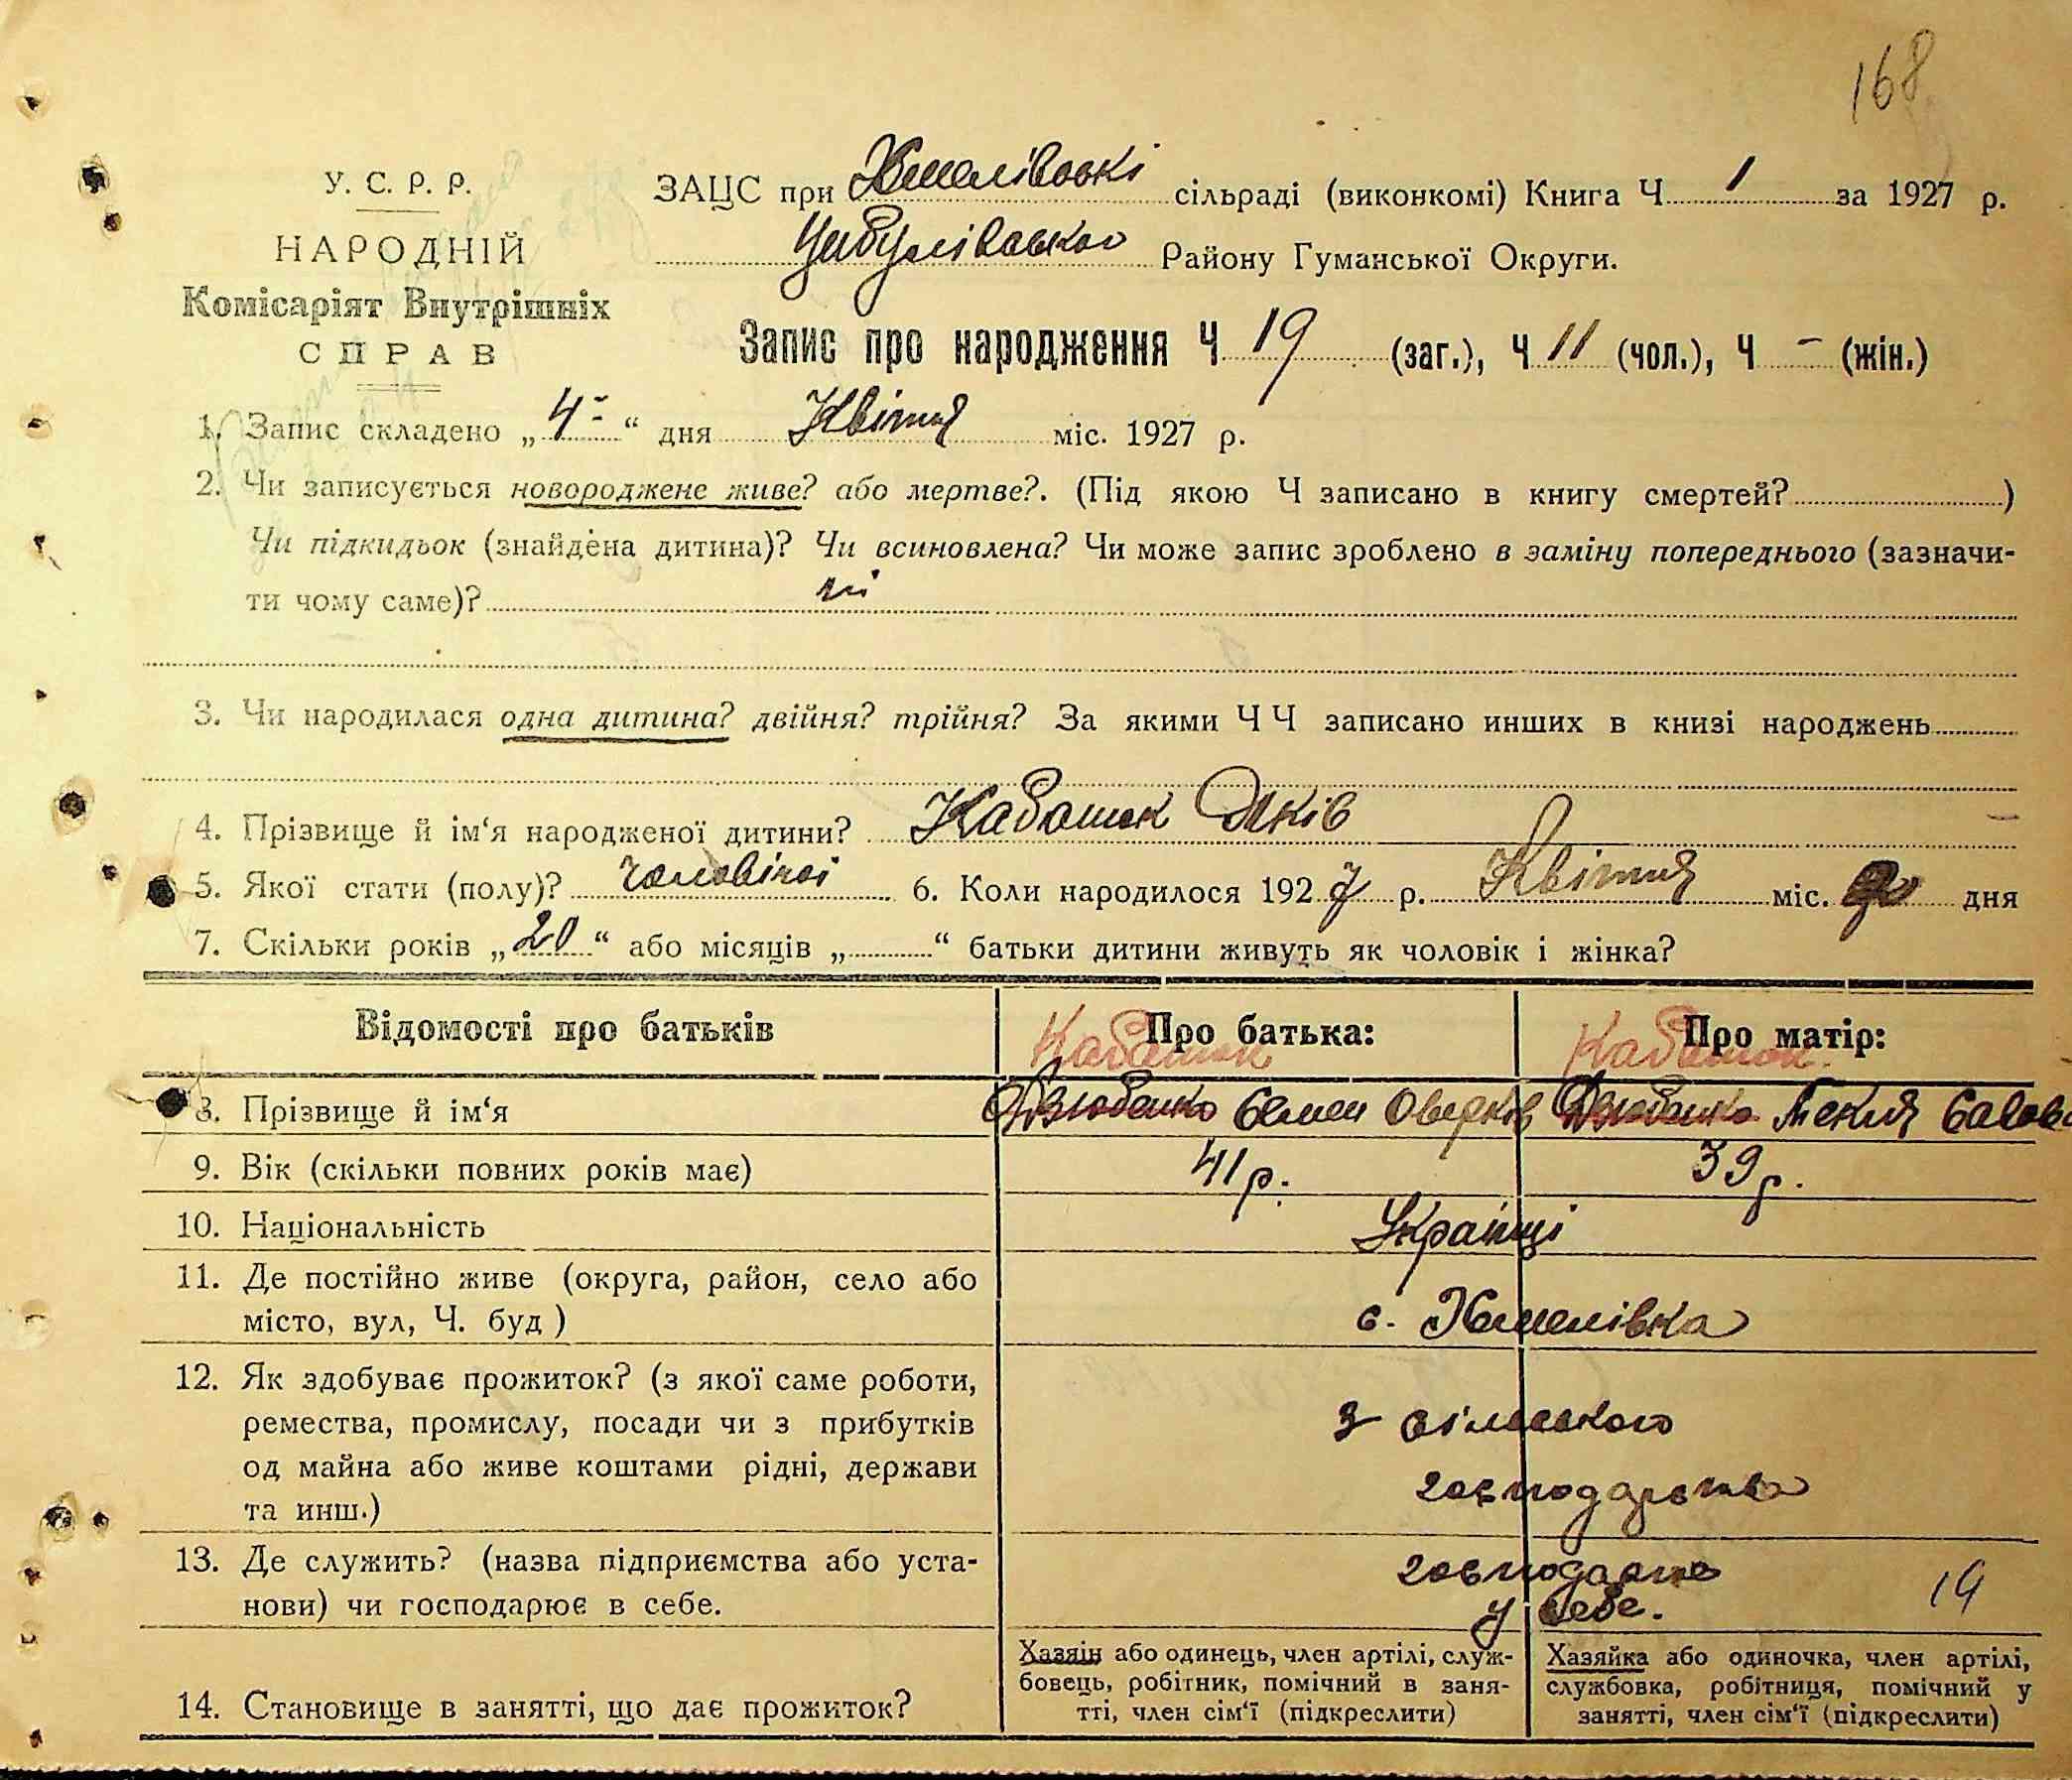 168
У. С. Р. Р.
НАРОДНІЙ
Комісаріят Внутрішніх
СПРАВ
ЗАЦС при Хмелівські сільраді (виконкомі) Книга Ч 1 за 1927 р.
Цибулівсько Району Гуманської Округи.
Запис про народження Ч 19 (заг.), Ч 11 (чол.), Ч - (жін.)
1. Запис складено „4" дня Квітня міс. 1927 р.
2. Чи записується новороджене живе? або мертве?. (Під якою Ч записано в книгу смертей? )
Чи підкидьок (знайдена дитина)? Чи всиновлена? Чи може запис зроблено в заміну попереднього (зазначи-
ти чому саме)? ні
3. Чи народилася одна дитина? двійня? трійня? За якими ЧЧ записано инших в книзі народжень
4. Прізвище й ім'я народженої дитини? Кабашок Яків
5. Якої статі (полу)? чоловічої 6. Коли народилося 1927 р. Квітня міс. дня
7. Скільки років „20" або місяців „ " батьки дитини живуть як чоловік і жінка?
Відомості про батьків
Про батька:
Про матір:
Кабашок
Кабашок
8. Прізвище й ім'я
Дзюбенко Семен Оверків
Дзюбенко Текля Савов
9. Вік (скільки повних років має)
41 р.
39 р.
10. Національність
Українці
11. Де постійно живе (округа, район, село або
місто, вул, Ч. буд)
с. Хмелівка
12. Як здобуває прожиток? (з якої саме роботи,
ремества, промислу, посади чи з прибутків
од майна або живе коштами рідні, держави
та инш.)
З сільського
господарства
13. Де служить? (назва підприємства або уста-
нови) чи господарює в себе.
у себе.
19
14. Становище в занятті, що дає прожиток?
Хазяїн або одинець, член артілі, служ-
бовець, робітник, помічний в заня-
тті, член сім'ї (підкреслити)
Хазяйка або одиночка, член артілі,
службовка, робітниця, помічний у
занятті, член сім'ї (підкреслити)